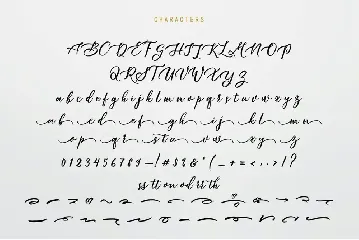 CHARACTERS
ABCDEFGHIJKLMNOP
QRSTUVWXYZ
a b c d e f g h i j k l m n o p q r s t u v w x y z
a b c d e f g h i j k l m n
o p q r s t u v w x y z
0 1 2 3 4 5 6 7 8 9 - ! # $ % & * ( _ + = < , . > / ?
ss tt on od rt th